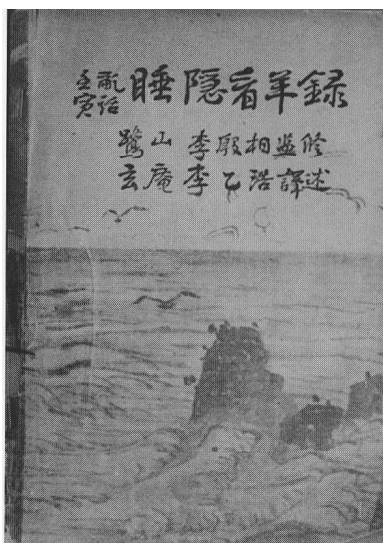 壬亂實話 睡隱看羊録
鷺山 李殷相 監修
玄庵 李乙浩 譯述